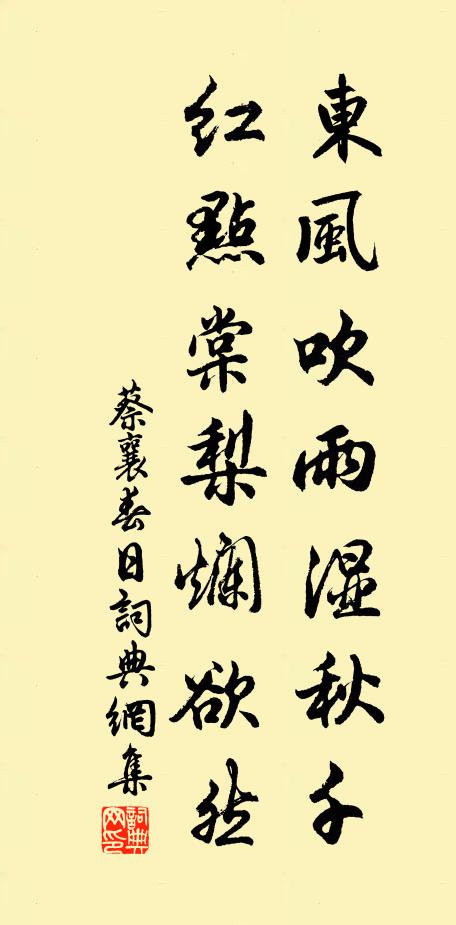 東風吹雨湿秋千
紅點棠梨爛欲然
蔡襄春日詞典網集
詞典網印